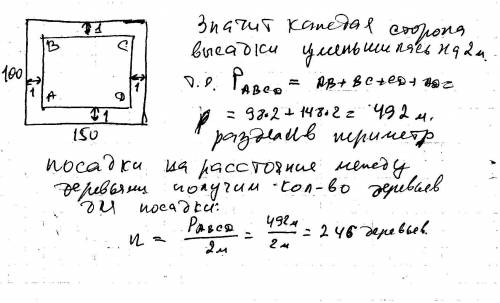 1
B C
100 1 1
A D
1
150
Значит каждая сторона
высадки уменьшилась на 2 м.
т.о. P ABCD = AB + BC + CD + AD =
P = 98·2 + 148·2 = 492 м.
разделив периметр
посадки на расстояние между
деревьями получим кол-во деревьев
для посадки:
n = P ABCD / 2м = 492м / 2м = 246 деревьев.